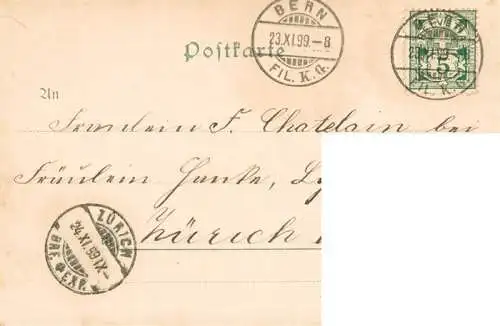 BERN
23.XI.99.-8
FIL. K. G.
BERN
5
FIL. K. G.
Postkarte
An
Fräulein F. Chatelain bei
Fräulein Hanke,
Zürich
ZÜRICH
24.XI.99.IX-
BRF. EXP.